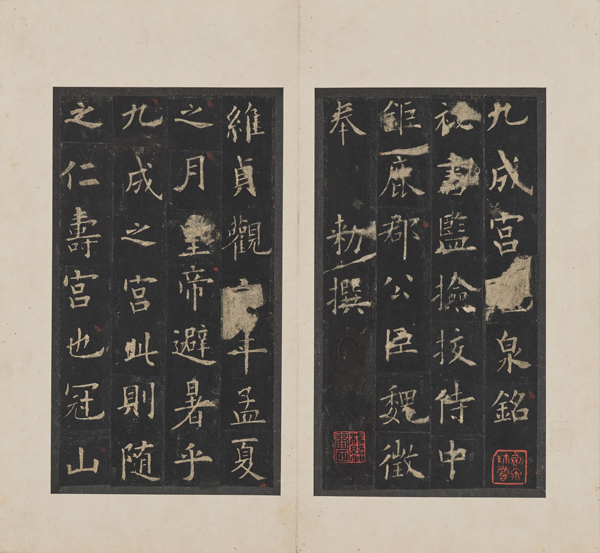 九成宮泉銘
祕書監撿挍侍中
鉅鹿郡公臣魏徵
奉 勅撰
維貞觀年孟夏
之月皇帝避暑乎
九成之宮此則随
之仁壽宮也冠山